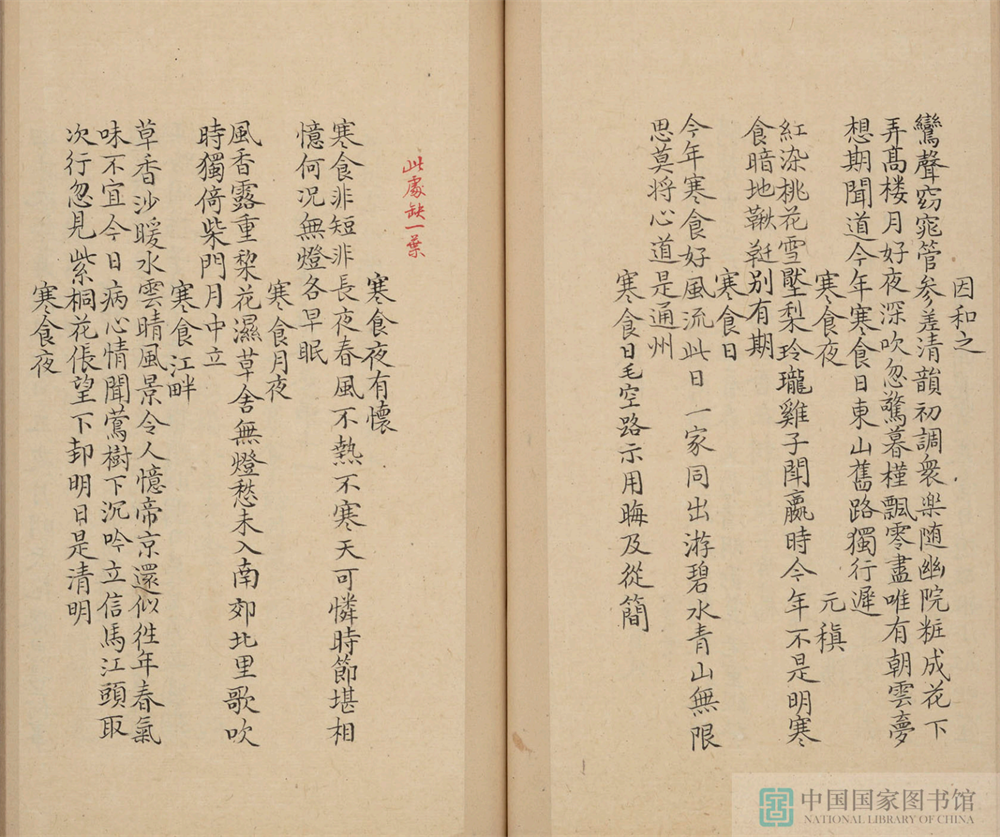 因和之
鸞聲窈窕管參差清韻初調衆樂随幽院粧成花下
弄髙楼月好夜深吹忽驚暮槿飄零盡唯有朝雲夢
想期聞道今年寒食日東山舊路獨行遲
寒食夜 元稹
紅染桃花雪壓梨玲瓏雞子鬪贏時今年不是明寒
食暗地鞦韆别有期
寒食日
今年寒食好風流此日一家同出游碧水青山無限
思莫将心道是通州
寒食日毛空路示用晦及從簡
此處缺一葉
寒食夜有懷
寒食非短非長夜春風不熱不寒天可憐時節堪相
憶何況無燈各早眠
寒食月夜
風香露重梨花濕草舍無燈愁未入南郊北里歌吹
時獨倚柴門月中立
寒食江畔
草香沙暖水雲晴風景令人憶帝京還似徃年春氣
味不宜今日病心情聞鶯樹下沉吟立信馬江頭取
次行忽見紫桐花倀望下卸明日是清明
寒食夜
中国国家图书馆
NATIONAL LIBRARY OF CHINA